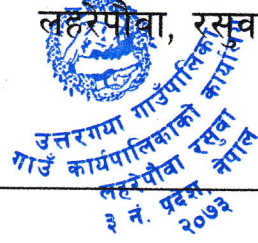 लहरेपौवा, रसुव
उत्तरगया गाउँपालिका
गाउँ कार्यपालिकाको कार्या
लहरेपौवा रसुवा
३ नं. प्रदेश, नेपाल
२०७३